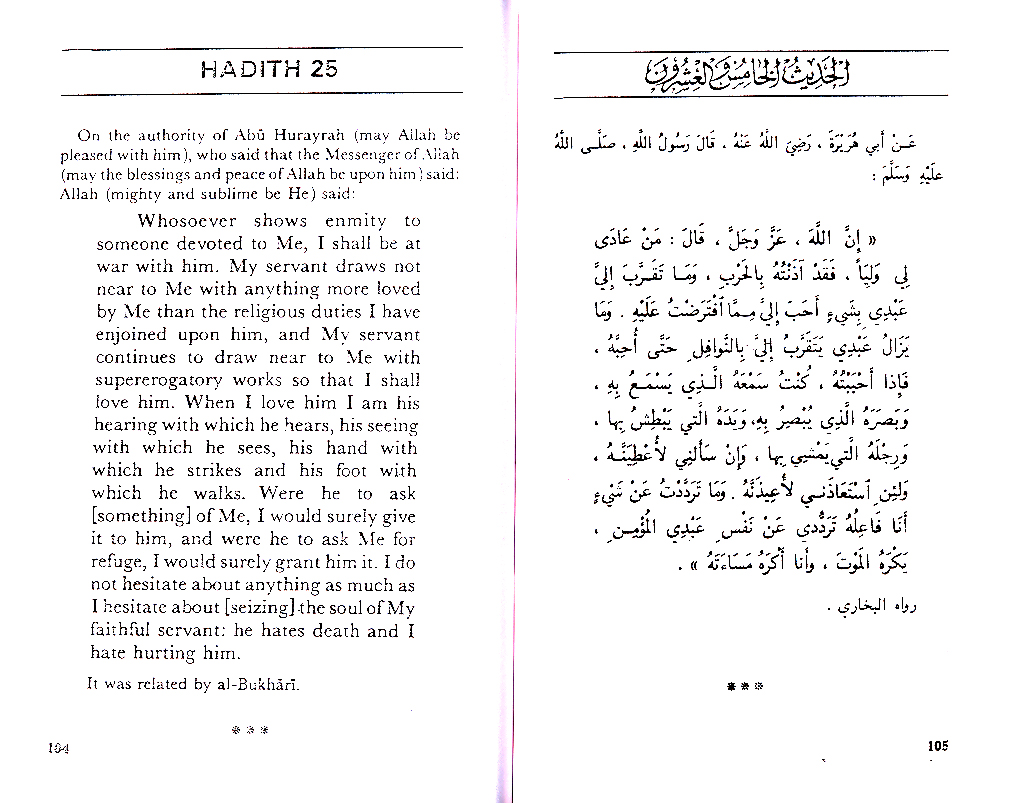 HADITH 25
On the authority of Abū Hurayrah (may Allah be
pleased with him), who said that the Messenger of Allah
(may the blessings and peace of Allah be upon him) said:
Allah (mighty and sublime be He) said:
Whosoever shows enmity to
someone devoted to Me, I shall be at
war with him. My servant draws not
near to Me with anything more loved
by Me than the religious duties I have
enjoined upon him, and My servant
continues to draw near to Me with
supererogatory works so that I shall
love him. When I love him I am his
hearing with which he hears, his seeing
with which he sees, his hand with
which he strikes and his foot with
which he walks. Were he to ask
[something] of Me, I would surely give
it to him, and were he to ask Me for
refuge, I would surely grant him it. I do
not hesitate about anything as much as
I hesitate about [seizing] the soul of My
faithful servant: he hates death and I
hate hurting him.
It was related by al-Bukhārī.
* * *
104
الحَدِيثُ الخَامِسُ وَالعِشْرُونَ
عَنْ أَبي هُرَيْرَةَ ، رَضِيَ اللهُ عَنْهُ ، قَالَ رَسُولُ اللهِ ، صَلَّى اللهُ
عَلَيْهِ وَسَلَّمَ :
« إِنَّ اللهَ ، عَزَّ وَجَلَّ ، قَالَ : مَنْ عَادَى
لِي وَلِيًّا ، فَقَدْ آذَنْتُهُ بِالحَرْبِ ، وَمَا تَقَرَّبَ إِلَيَّ
عَبْدِي بِشَيْءٍ أَحَبَّ إِلَيَّ مِمَّا آفْتَرَضْتُ عَلَيْهِ . وَمَا
يَزَالُ عَبْدِي يَتَقَرَّبُ إِلَيَّ بِالنَّوَافِلِ حَتَّى أُحِبَّهُ ،
فَإِذَا أَحْبَبْتُهُ ، كُنْتُ سَمْعَهُ الَّذِي يَسْمَعُ بِهِ ،
وَبَصَرَهُ الَّذِي يُبْصِرُ بِهِ، وَيَدَهُ الَّتي يَبْطِشُ بِها ،
وَرِجْلَهُ الَّتي يَمْشِي بِها ، وَإِنْ سَأَلَنِي لأُعْطِيَنَّهُ ،
وَلَئِنِ آسْتَعَاذَنِي لأُعِيذَنَّهُ . وَمَا تَرَدَّدْتُ عَنْ شَيْءٍ
أَنَا فَاعِلُهُ تَرَدُّدِي عَنْ نَفْسِ عَبْدِي المُؤْمِنِ ،
يَكْرَهُ المَوْتَ ، وأَنا أَكْرَهُ مَسَاءَتَهُ » .
رواه البخاري .
* * *
105